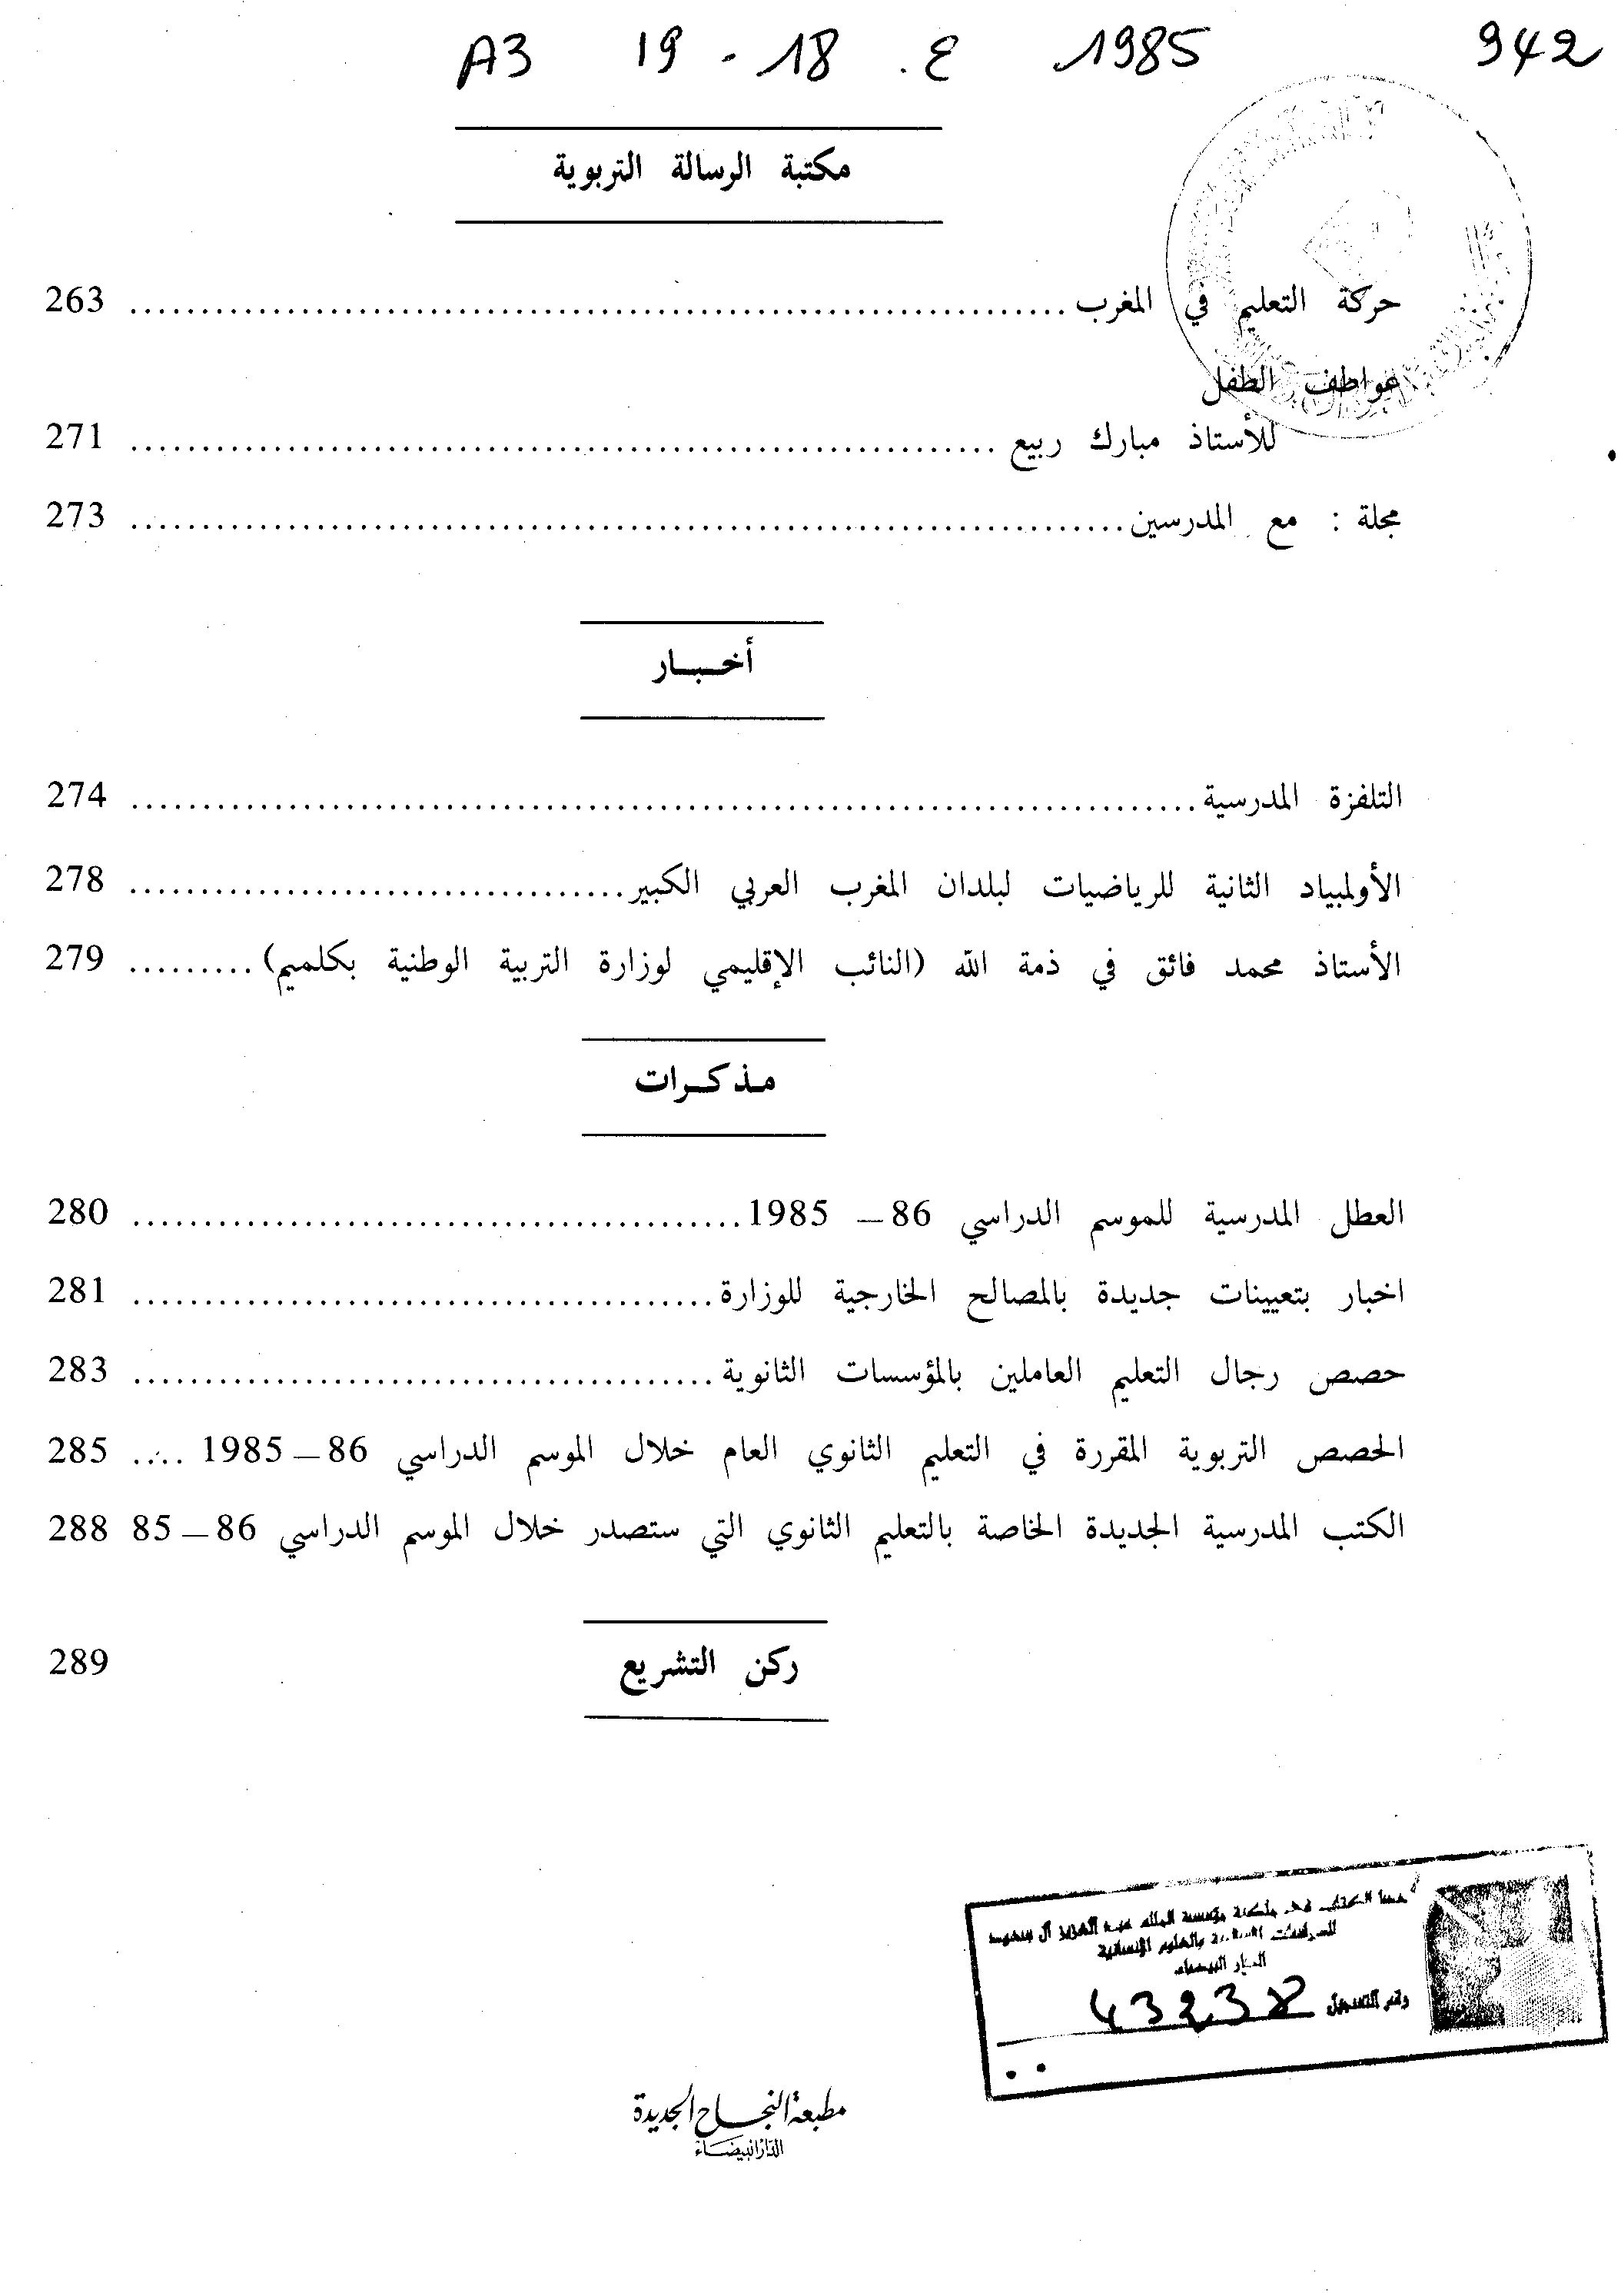 A3 19 - 18 . ع 1985 942
مكتبة الرسالة التربوية
حركة التعليم في المغرب ........ 263
عواطف الطفل
للأستاذ مبارك ربيع ........ 271
مجلة : مع المدرسين ........ 273
أخبار
التلفزة المدرسية ........ 274
الأولمبياد الثانية للرياضيات لبلدان المغرب العربي الكبير ........ 278
الأستاذ محمد فائق في ذمة الله (النائب الإقليمي لوزارة التربية الوطنية بكلميم) ........ 279
مذكرات
العطل المدرسية للموسم الدراسي 86 – 1985 ........ 280
اخبار بتعيينات جديدة بالمصالح الخارجية للوزارة ........ 281
حصص رجال التعليم العاملين بالمؤسسات الثانوية ........ 283
الحصص التربوية المقررة في التعليم الثانوي العام خلال الموسم الدراسي 86 – 1985 .... 285
الكتب المدرسية الجديدة الخاصة بالتعليم الثانوي التي ستصدر خلال الموسم الدراسي 86 – 85 288
ركن التشريع 289
هذا الكتاب في ملكية مؤسسة الملك عبد العزيز آل سعود
للدراسات الإسلامية والعلوم الإنسانية
الدار البيضاء
رقم التسجيل 43238
مطبعة النجاح الجديدة
الدار البيضاء